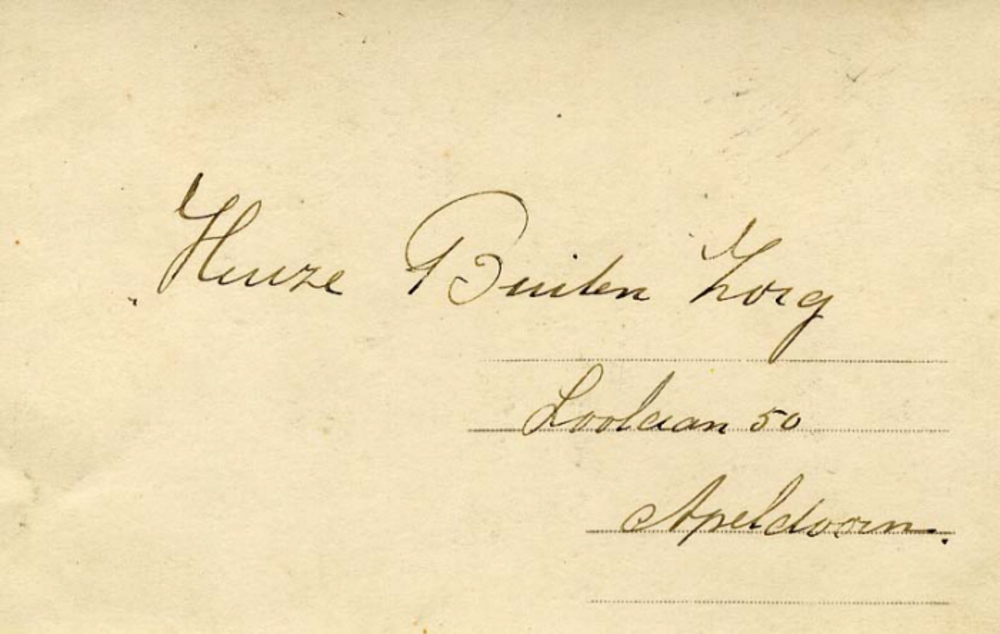 Huize Buiten Zorg
Loolaan 50
Apeldoorn.